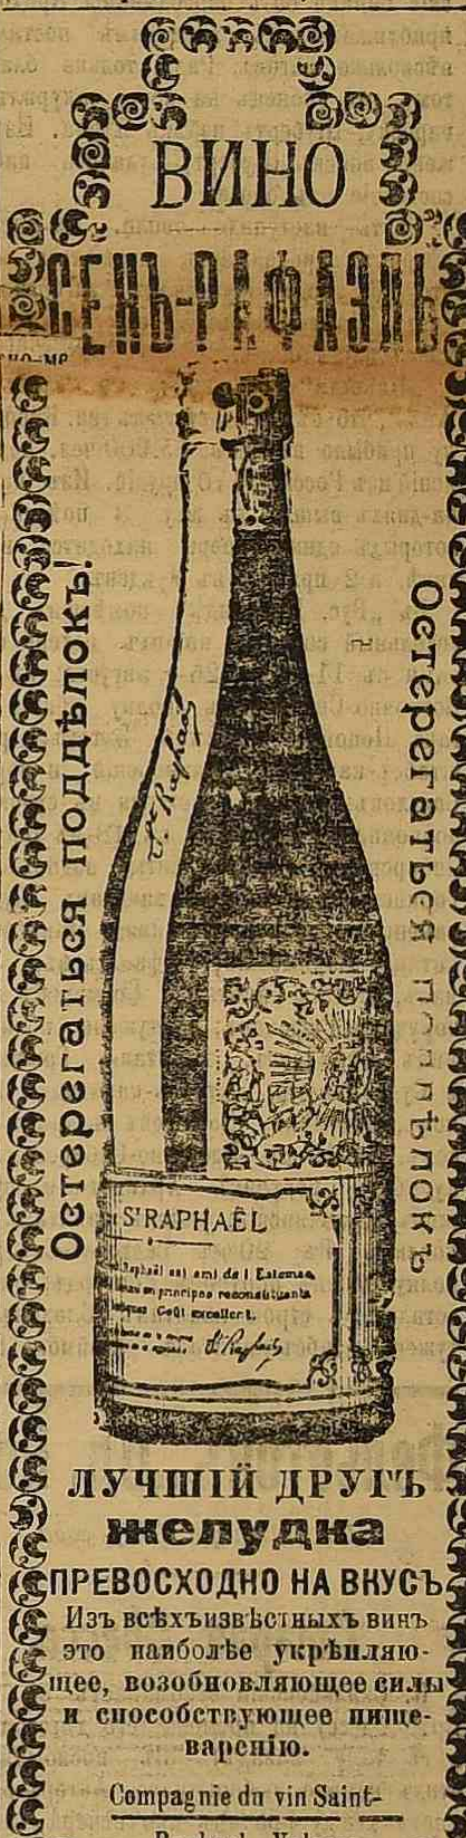 ВИНО
СЕНЪ-РАФАЭЛЬ
Остерегаться поддѣлокъ!
Остерегаться поддѣлокъ
St Raphaël
ST RAPHAËL
Raphaël est ami de l'Estomac
en principes reconstituants
Goût excellent.
St Raphaël
ЛУЧШІЙ ДРУГЪ
желудка
ПРЕВОСХОДНО НА ВКУСЪ
Изъ всѣхъ извѣстныхъ винъ
это наиболѣе укрѣпляю-
щее, возобновляющее силы
и способствующее пище-
варенію.
Compagnie du vin Saint-